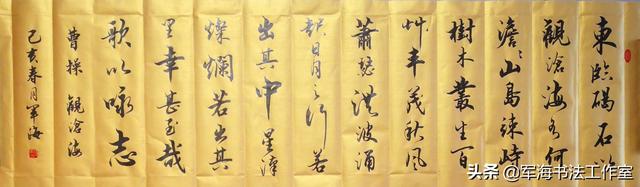 東臨碣石以
觀滄海水何
澹〻山島竦峙
樹木叢生百
艸丰茂秋風
蕭瑟洪波涌
起日月之行若
出其中星漢
燦爛若出其
里幸甚至哉
歌以咏志
曹操 觀滄海
己亥春月军海
头条 @军海书法工作室